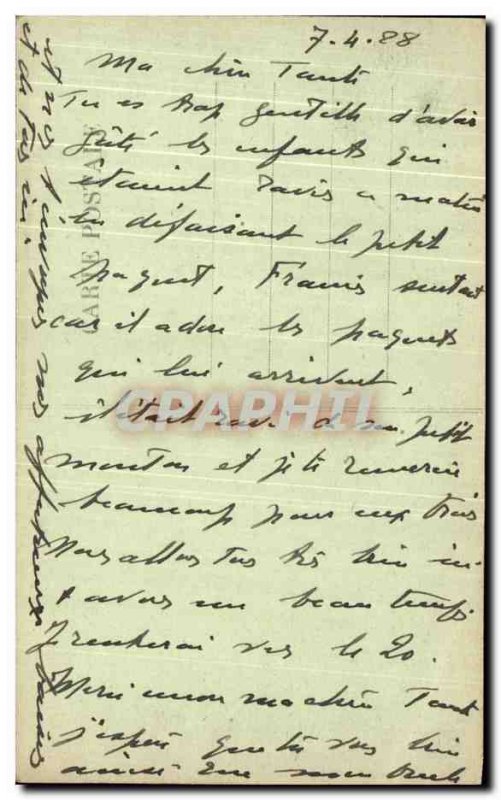 7.4.28
Ma chère Tante
Tu es trop gentille d'avoir
gâté les enfants qui
étaient ravis ce matin
en défaisant le petit
paquet, Francis surtout
car il adore les paquets
qui lui arrivent,
il était ravi de son petit
mouton et je te remercie
beaucoup pour eux trois
Nous allons tous très bien ici
& avons un beau temps.
Je rentrerai vers le 20.
Merci encore ma chère Tante
j'espère que tu vas bien
ainsi que mon oncle
et nous vous nos affectueux baisers
et de tous ici.
CARTE POSTALE
CPAPHIL